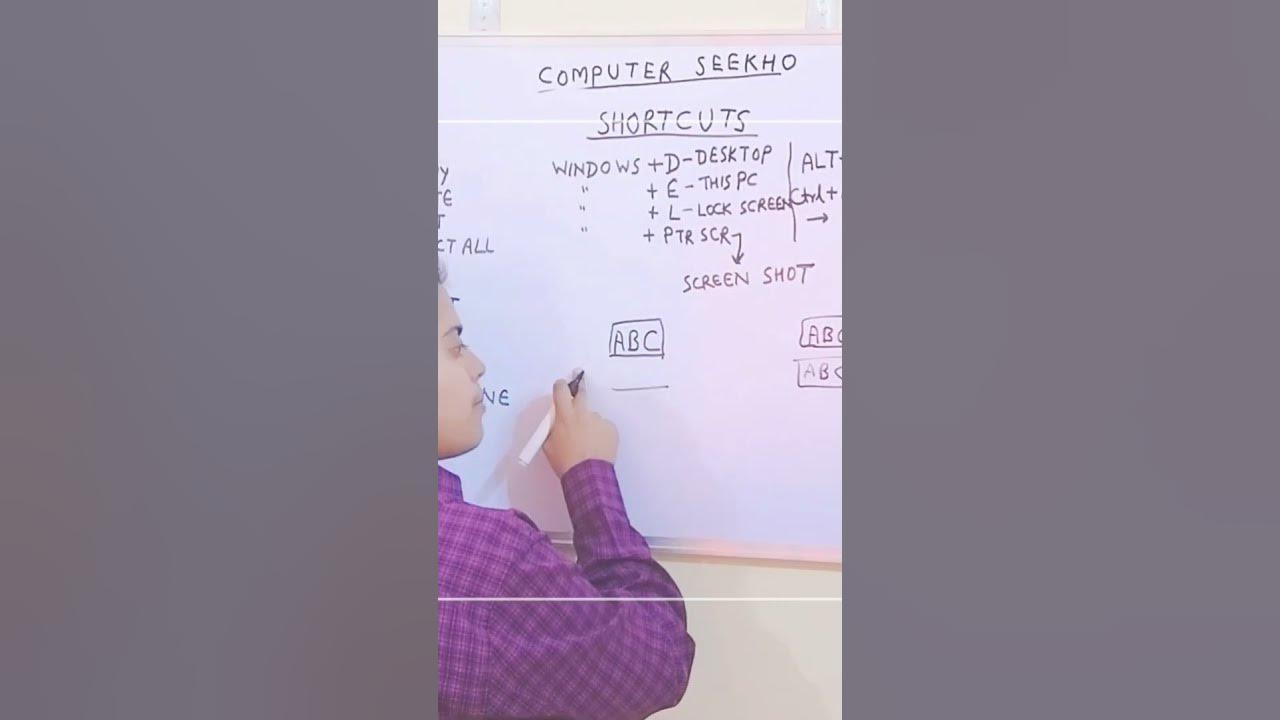 COMPUTER SEEKHO
SHORTCUTS
WINDOWS + D - DESKTOP
" + E - THIS PC
" + L - LOCK SCREEN
" + PTR SCR
SCREEN SHOT
ALT
Ctrl +
→
Y
TE
T
CT ALL
NE
ABC
ABC
ABC